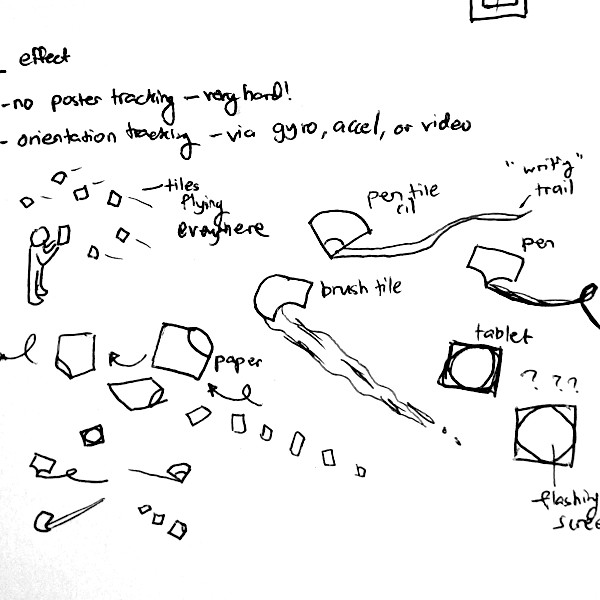 - effect
-no poster tracking - very hard!
- orientation tracking - via gyro, accel, or video
tiles
flying
everywhere
pen tile
cil
"writing"
trail
pen
brush tile
tablet
? ? ?
paper
flashing
scree